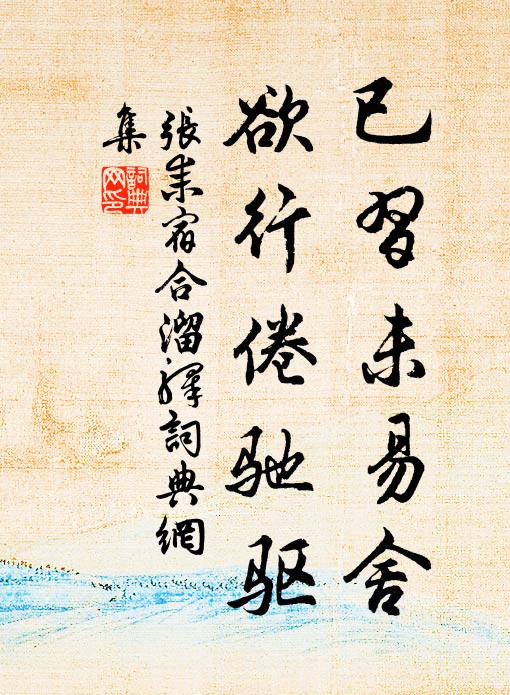 已習未易舍
欲行倦驰驱
張耒宿合溜驛詞典網
集
詞典
网印